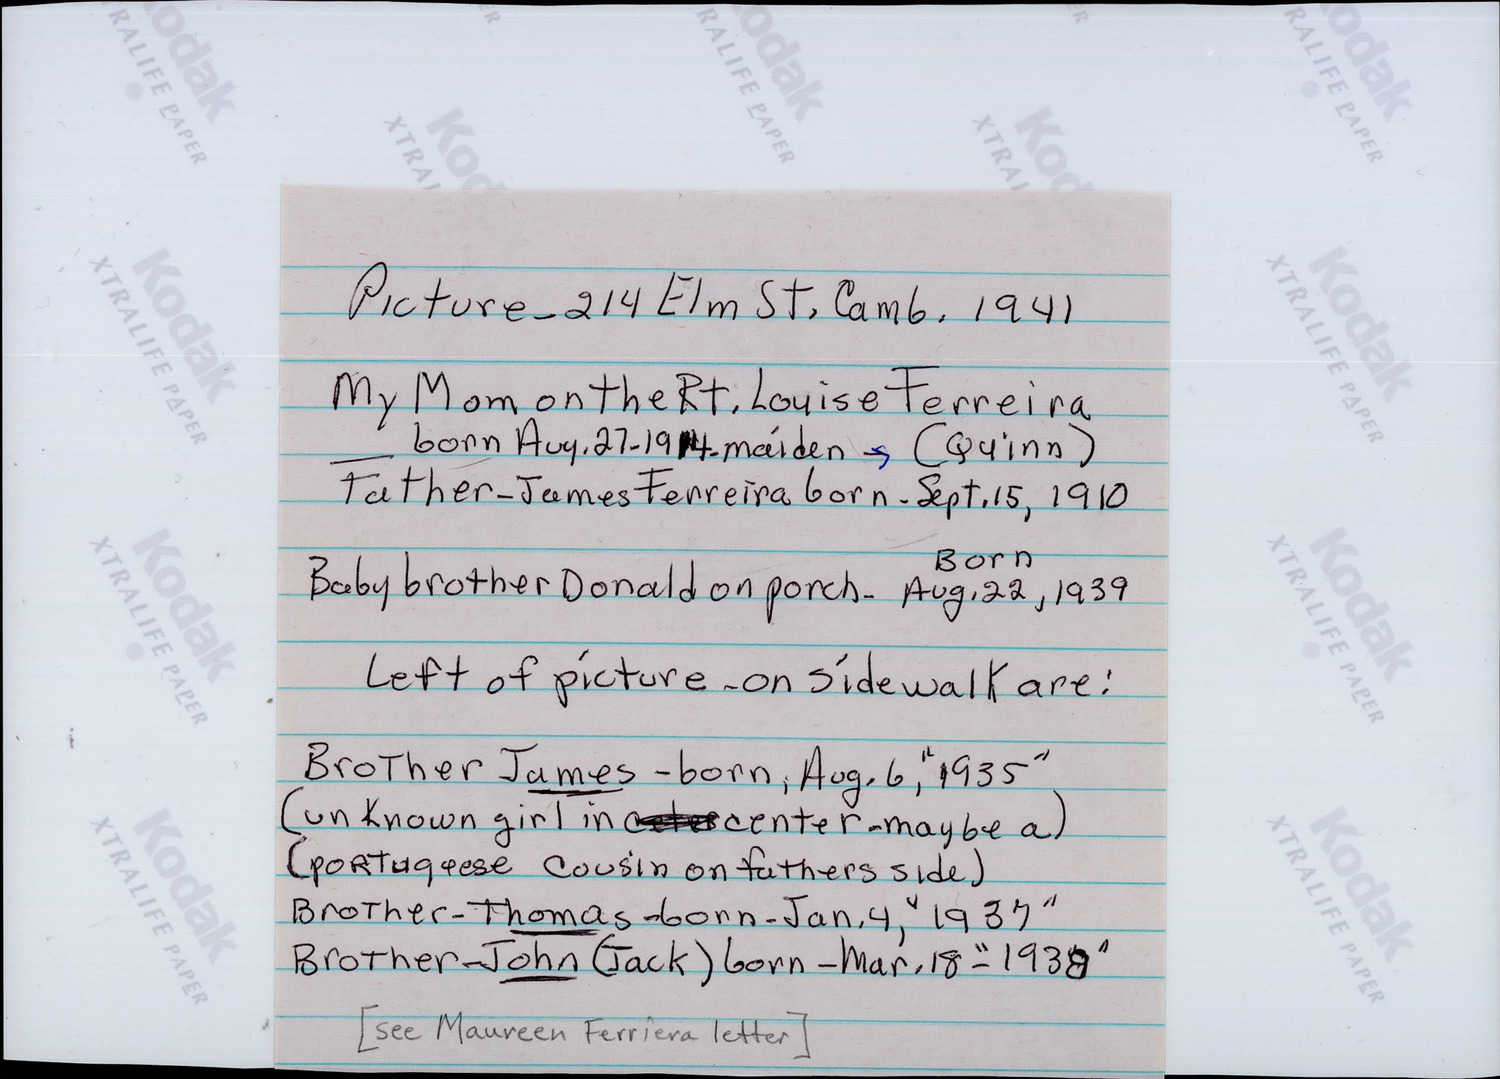 Picture - 214 Elm St, Camb. 1941
My Mom on the Rt. Louise Ferreira
born Aug. 27-1914 - maiden → (Quinn)
Father - James Ferreira born - Sept. 15, 1910
Born
Baby brother Donald on porch - Aug. 22, 1939
Left of picture - on sidewalk are:
Brother James - born, Aug. 6, "1935"
(unknown girl in center - maybe a)
(Portugeese Cousin on fathers side)
Brother - Thomas - born - Jan. 4, "1937"
Brother - John (Jack) born - Mar. 18 "- 1938"
[see Maureen Ferriera letter]
Kodak
XTRALIFE PAPER